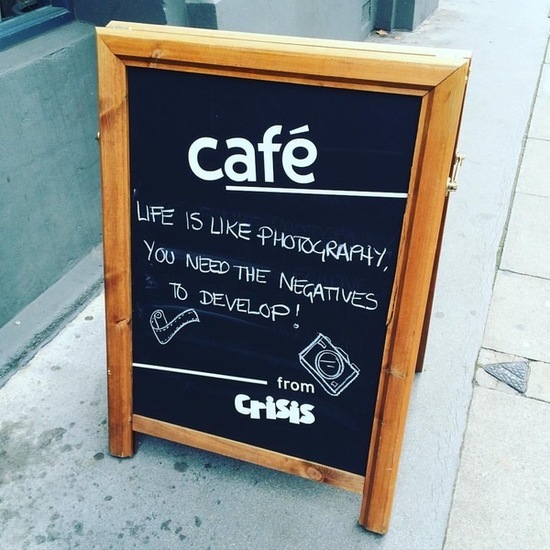 café
LIFE IS LIKE PHOTOGRAPHY,
YOU NEED THE NEGATIVES
TO DEVELOP!
from
Crisis